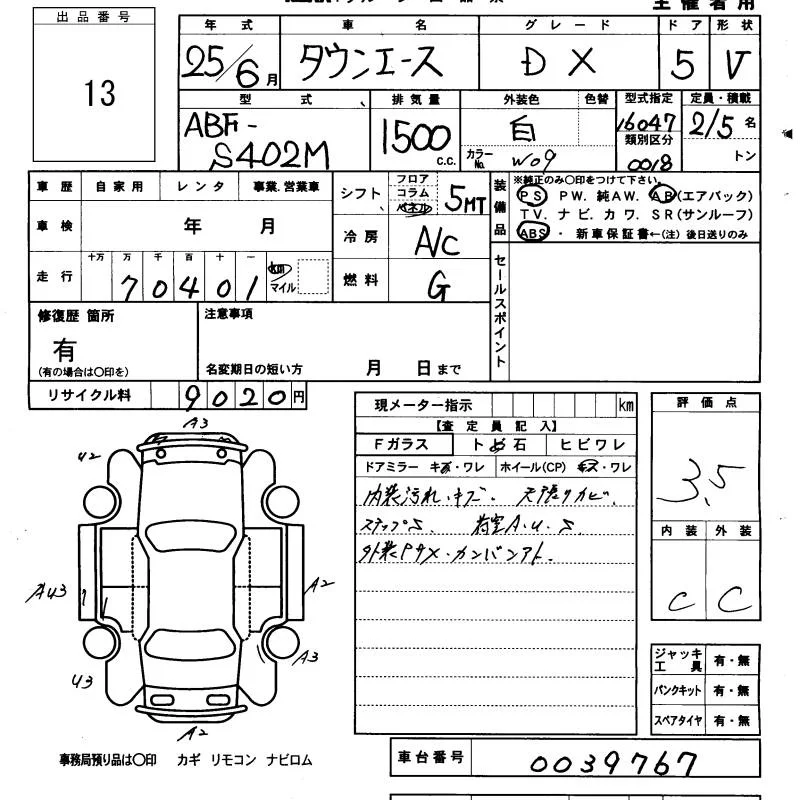 主催者用
出品番号
13
年式 車名 グレード ドア 形状
25/6月 タウンエース DX 5 V
型式 排気量 外装色 色替 型式指定 定員・積載
ABF-S402M 1500 c.c. 白 16047 2/5名
カラーNo. W09 類別区分 0018 トン
車歴 自家用 レンタ 事業.営業車
シフト フロア コラム パネル 5MT
装備品 ※純正のみ〇印をつけて下さい。
PS PW. 純AW. AB(エアバック)
TV. ナビ. カワ. SR(サンルーフ)
ABS ・ 新車保証書←(注) 後日送りのみ
車検 年 月
冷房 A/C
走行 十万 万 千 百 十 一
70401 km マイル
燃料 G
セールスポイント
修復歴 箇所 注意事項
有
(有の場合は〇印を) 名変期日の短い方 月 日まで
リサイクル料 9020円
現メーター指示 km
【査定員記入】
Fガラス トビ石 ヒビワレ
ドアミラー キズ・ワレ ホイール(CP) キズ・ワレ
内装汚れ・キズ. 天張りカビ.
ステップS. 荷室A.U.S
外装PサX・カンバンアト.
評価点
3.5
内装 外装
C C
A3
U2
AU3
A2
U3
A3
A2
ジャッキ工具 有・無
パンクキット 有・無
スペアタイヤ 有・無
事務局預り品は〇印 カギ リモコン ナビロム
車台番号 0039767